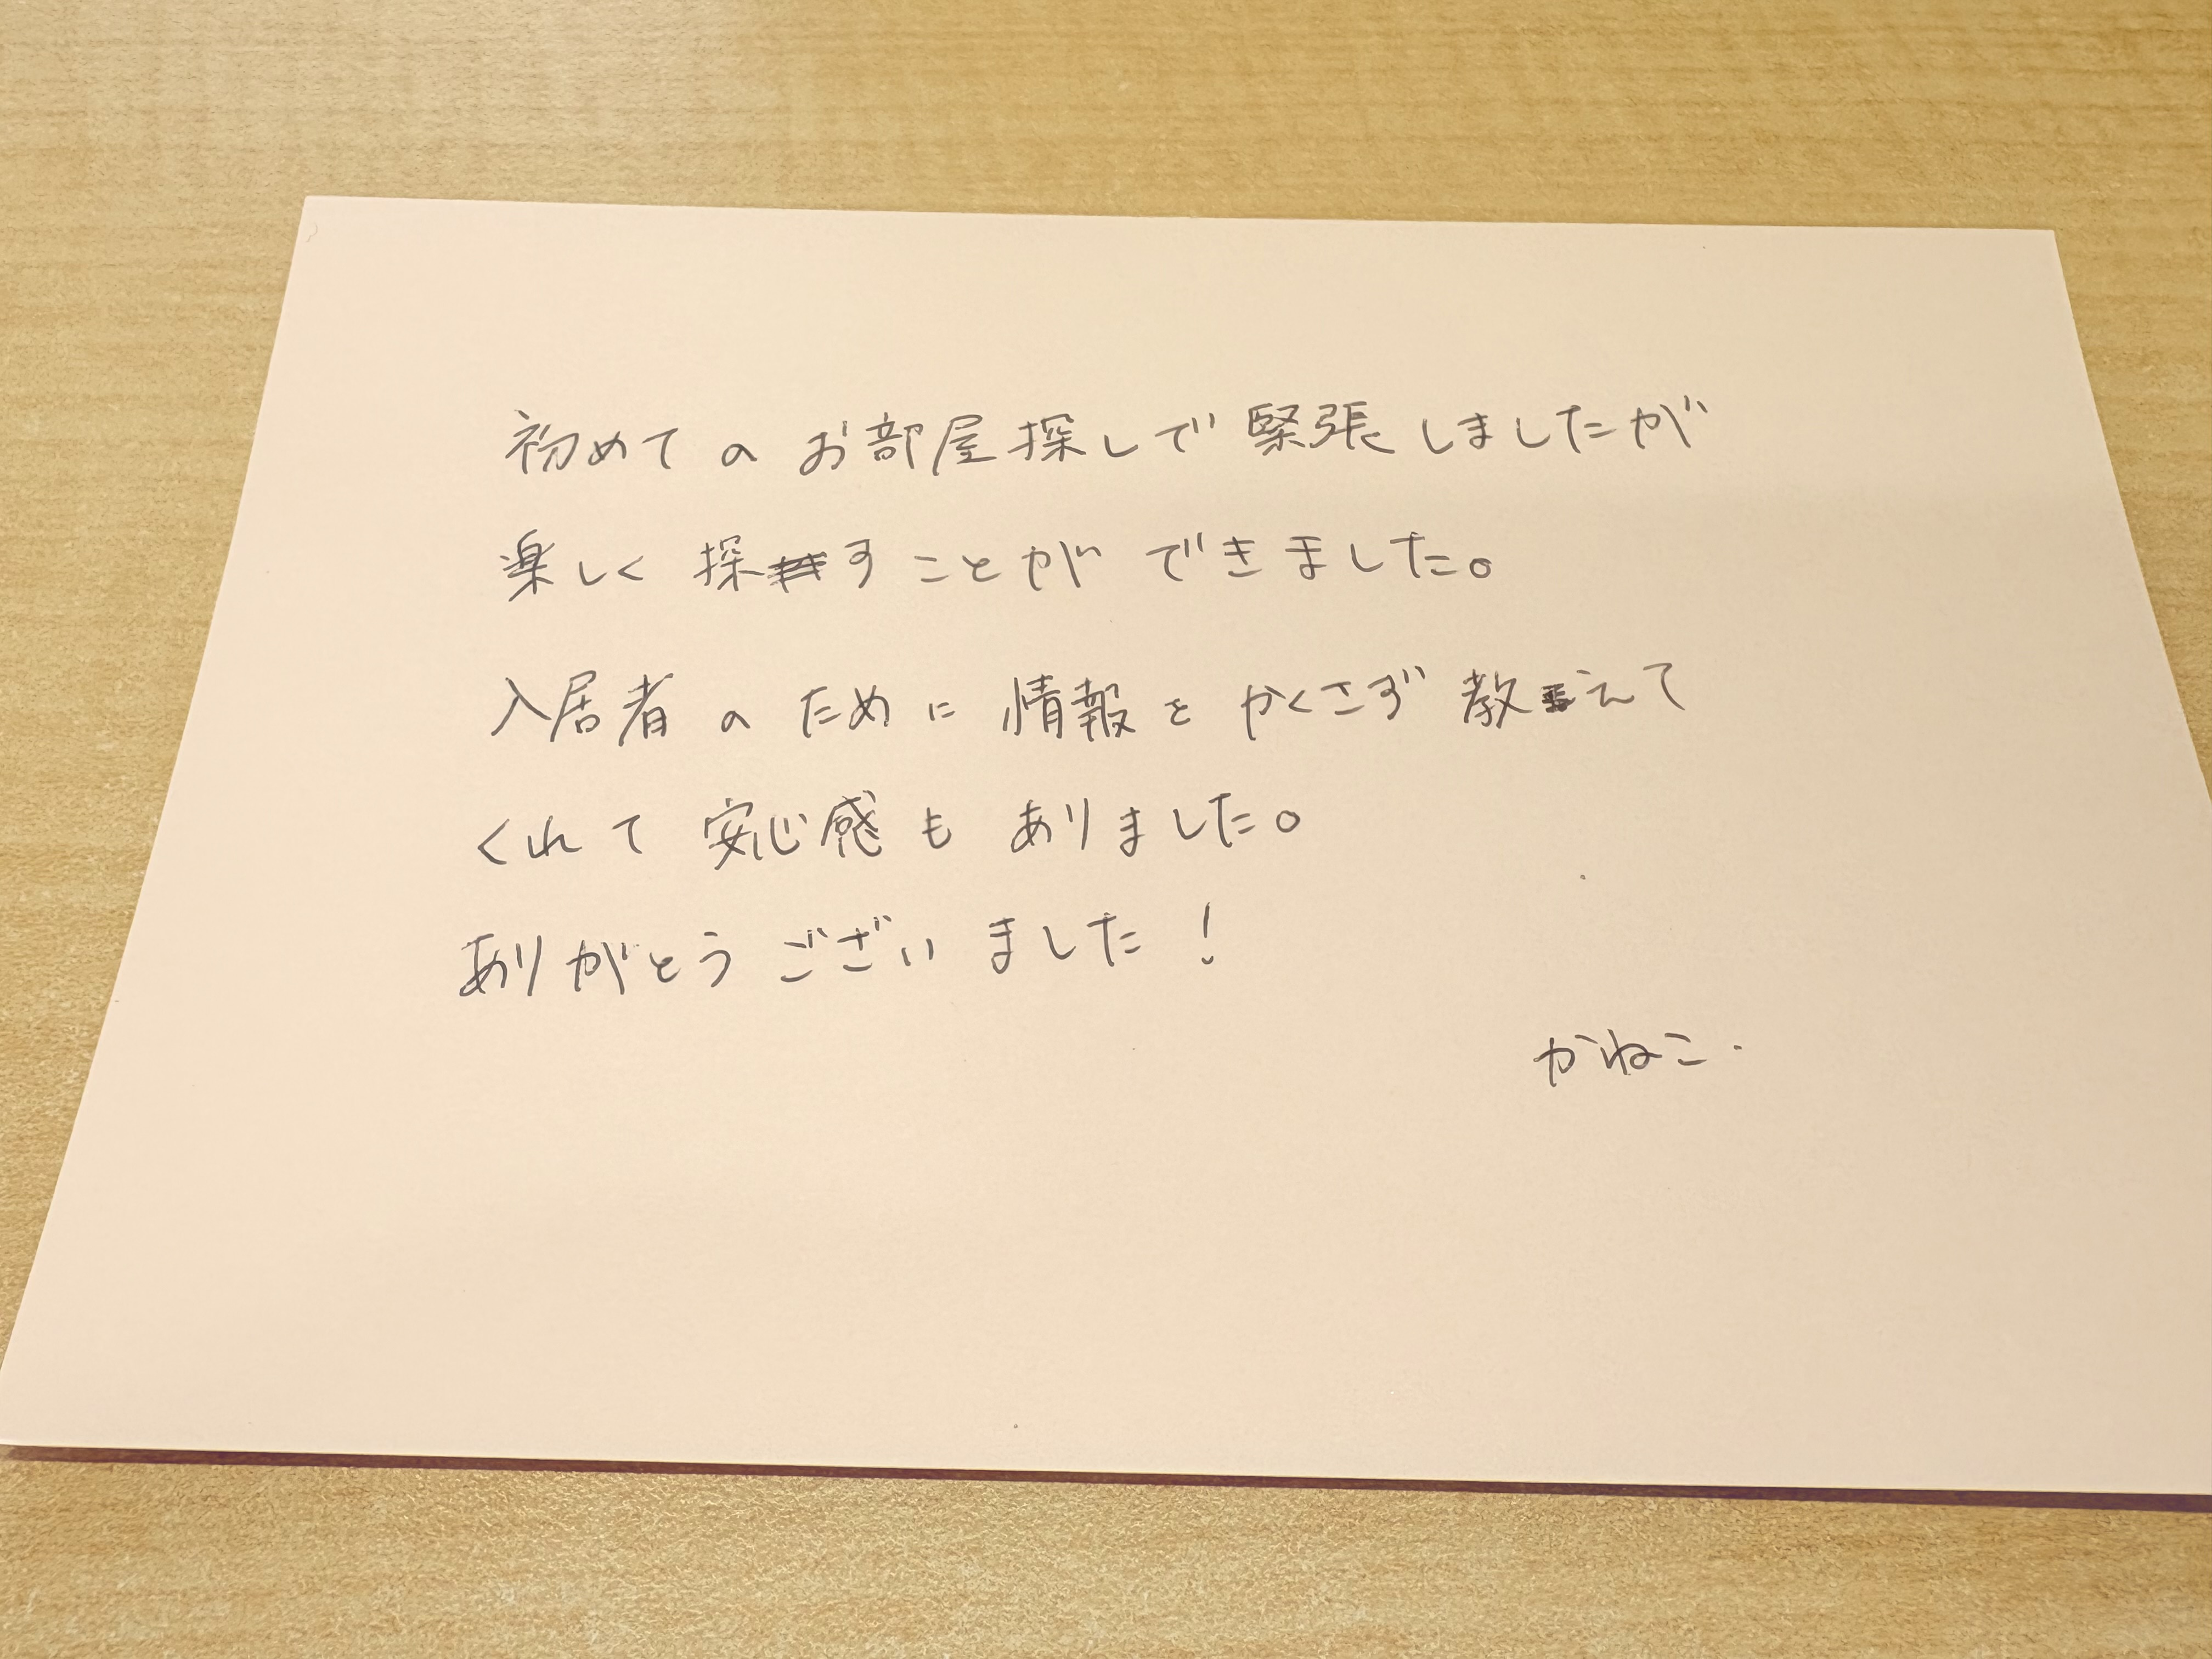 初めてのお部屋探しで緊張しましたが
楽しく探すことができました。
入居者のために情報をかくさず教えて
くれて安心感もありました。
ありがとうございました！
かねこ.